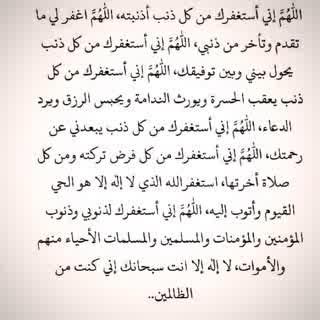 اللهُمَّ إني أستغفرك من كل ذنب أذنبته، اللهُمَّ اغفر لي ما
تقدم وتأخر من ذنبي، اللهُمَّ إني أستغفرك من كل ذنب
يحول بيني وبين توفيقك، اللهُمَّ إني أستغفرك من كل
ذنب يعقب الحسرة ويورث الندامة ويحبس الرزق ويرد
الدعاء، اللهُمَّ إني أستغفرك من كل ذنب يبعدني عن
رحمتك، اللهُمَّ إني أستغفرك من كل فرض تركته ومن كل
صلاة أخرتها، استغفرالله الذي لا إله إلا هو الحي
القيوم وأتوب إليه، اللهُمَّ إني أستغفرك لذنوبي وذنوب
المؤمنين والمؤمنات والمسلمين والمسلمات الأحياء منهم
والأموات، لا إله إلا انت سبحانك إني كنت من
الظالمين..